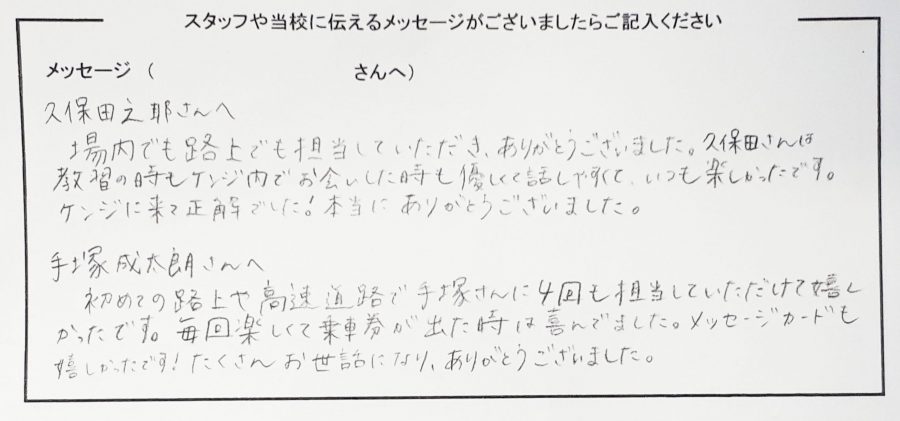 スタッフや当校に伝えるメッセージがございましたらご記入ください
メッセージ（　　　　　　　　　　さんへ）
久保田之耶さんへ
場内でも路上でも担当していただき、ありがとうございました。久保田さんは
教習の時もケンジ内でお会いした時も優しくて話しやすくて、いつも楽しかったです。
ケンジに来て正解でした！本当にありがとうございました。
手塚成太朗さんへ
初めての路上や高速道路で手塚さんに4回も担当していただけて嬉し
かったです。毎回楽しくて乗車券が出た時は喜んでました。メッセージカードも
嬉しかったです！たくさんお世話になり、ありがとうございました。